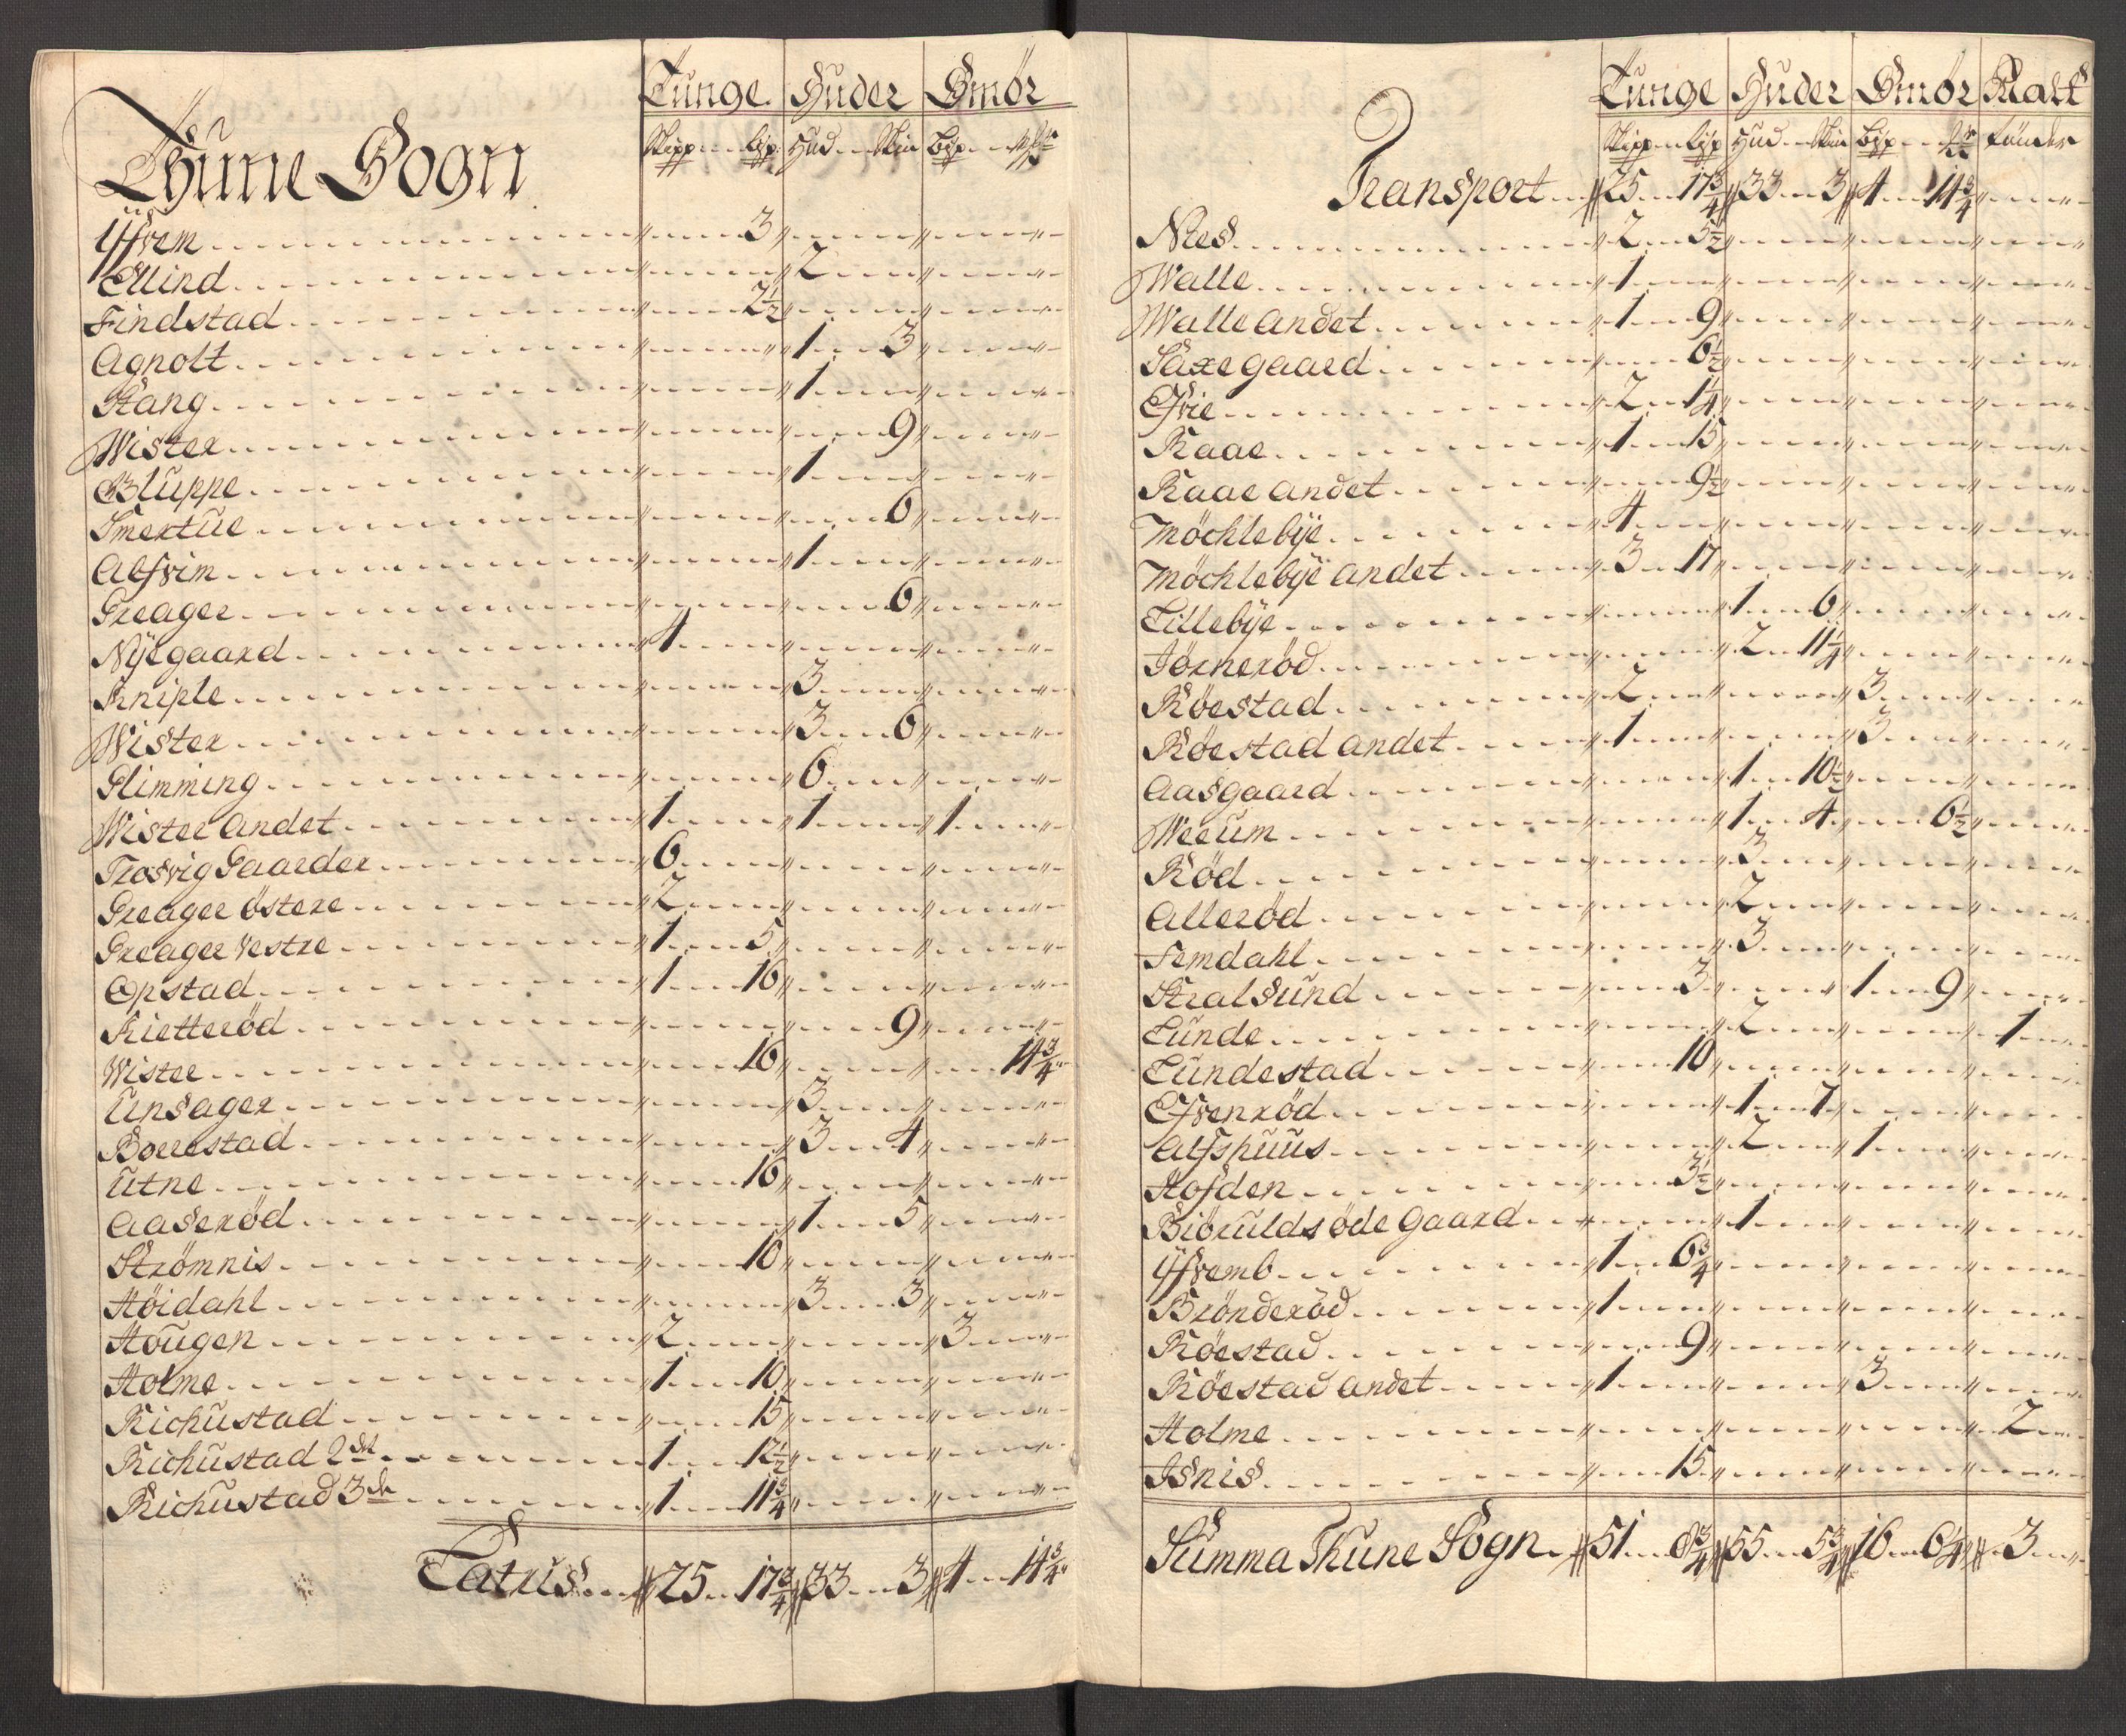 Tunge Huder Smør
Thune Sogn Skipp Lisp: Hud Skin Bisp
Yffrem 3
Ellind 2
Findstad 2½
Agnolt 1 3
Stang 1
Wister 9
Bluppe 1
Smertue 6
Alfvim 1
Greager 6
Nÿegaard 4
Kniple 3
Wister 3 6
Glimming 6
Wister andet 1 1 1
Trosvig Gaarder 6
Greager østere 2
Greager Vestre 1 5
Opstad 1 16
Kietterød 9
Wister 16 14¾
Unsager 3
Borrestad 3 4
Utne 16
Aaserød 1 5
Strömnis 10
Höidahl 3 3
Hougen 2 3
Holme 1 10
Richustad 15
Richustad 2det 1 12½
Richustad 3de 1 11¾
Latus 25 17¾ 33 3 4 14¾
Tunge Huder Smør Malt
Skipp Lisp Hud Skin Bisp Tünder
Transport 25 17¾ 33 3 4 14¾
Nies 2 5½
Walle 1
Walle andet 1 9
Saxegaard 6½
Efvie 2 1¼
Raae 1 15
Raae andet 9½
Möchlebÿe 4
Möchlebÿe andet 3 17
Lillebÿe 1 6
Jörneröd 2 11¼
Røestad 2 3
Røestad andet 1 3
Aasgaard 1 10½
Weeum 1 4 6½
Röd 3
Alleröd 2
Femdahl 3
Stralsund 3 1 9
Lunde 2 1
Lundestad 10
Efvenröd 1 7
Alfshuus 2 1
Hofden 3½
Biöruldsöde Gaard 1
Yffremb 1 6¾
Brönderöd 1
Røestad 9
Røestad andet 1 3
Holme 2
Isnis 15
Summa Thune Sogn 51 8¾ 55 5¾ 16 6¼ 3